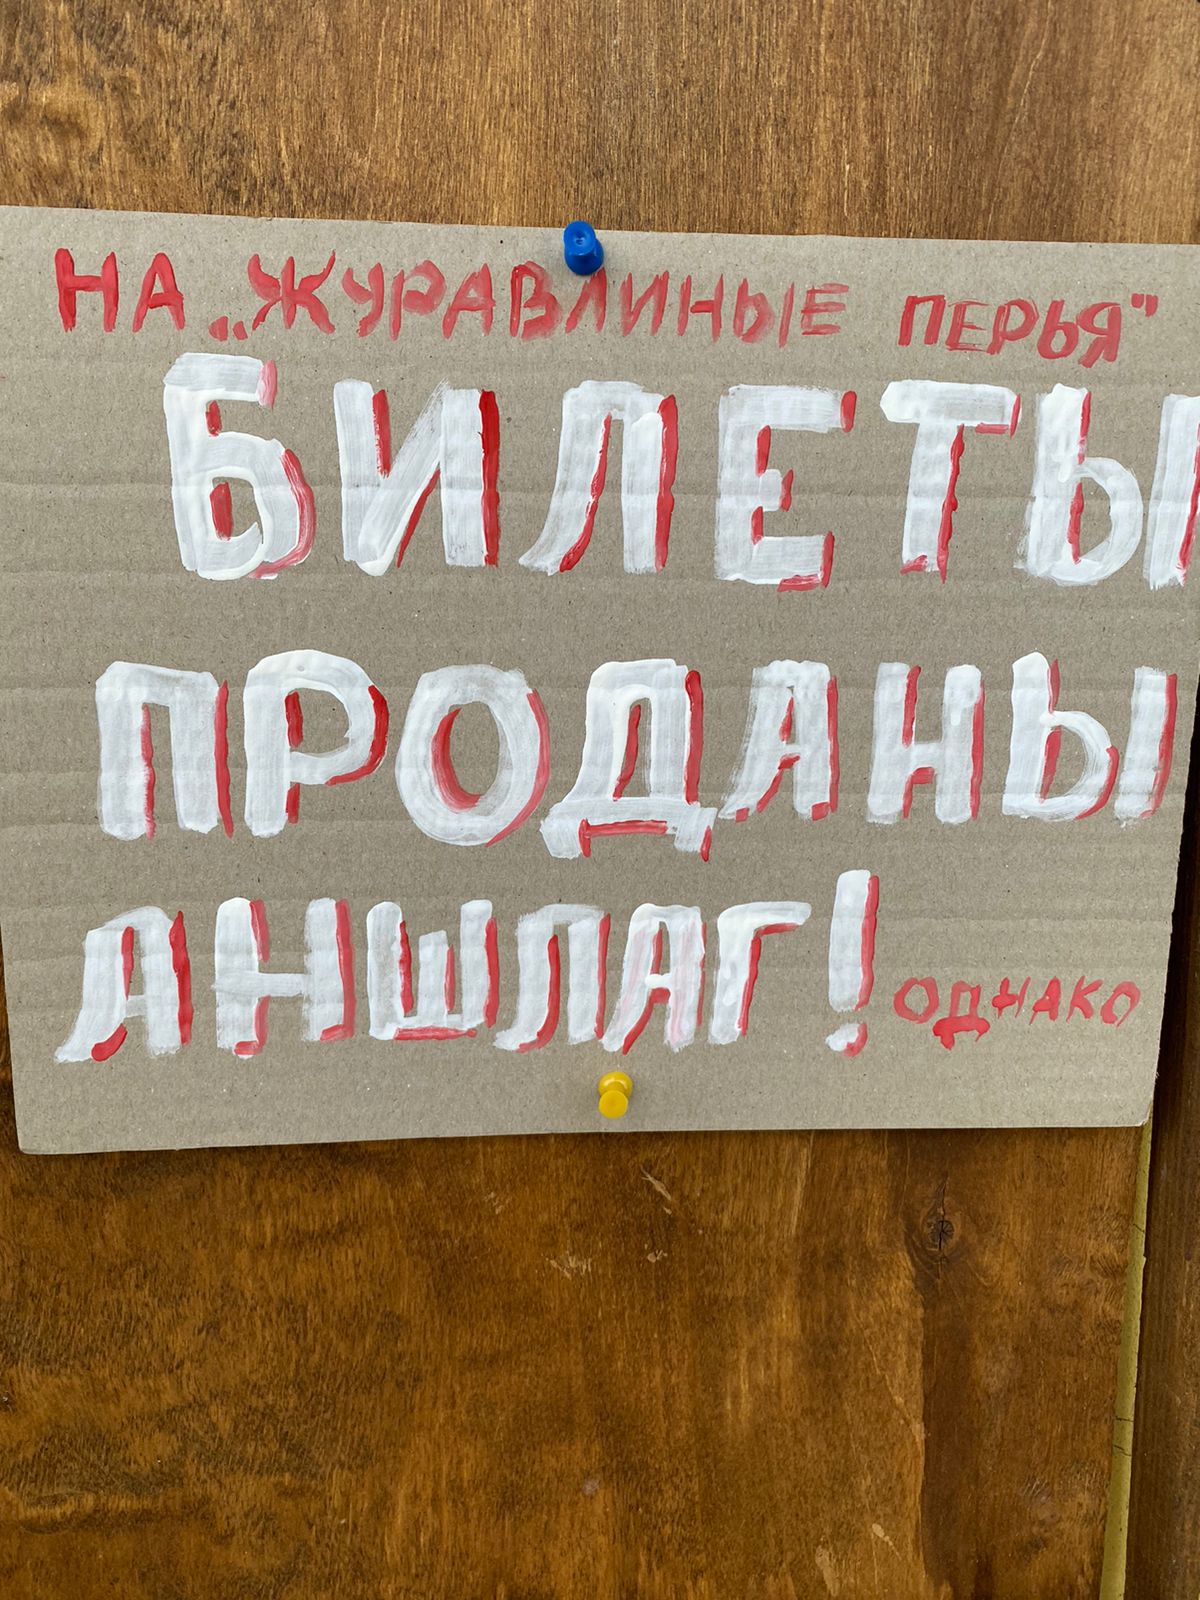 НА „ЖУРАВЛИНЫЕ ПЕРЬЯ"
БИЛЕТЫ
ПРОДАНЫ
АНШЛАГ! ОДНАКО